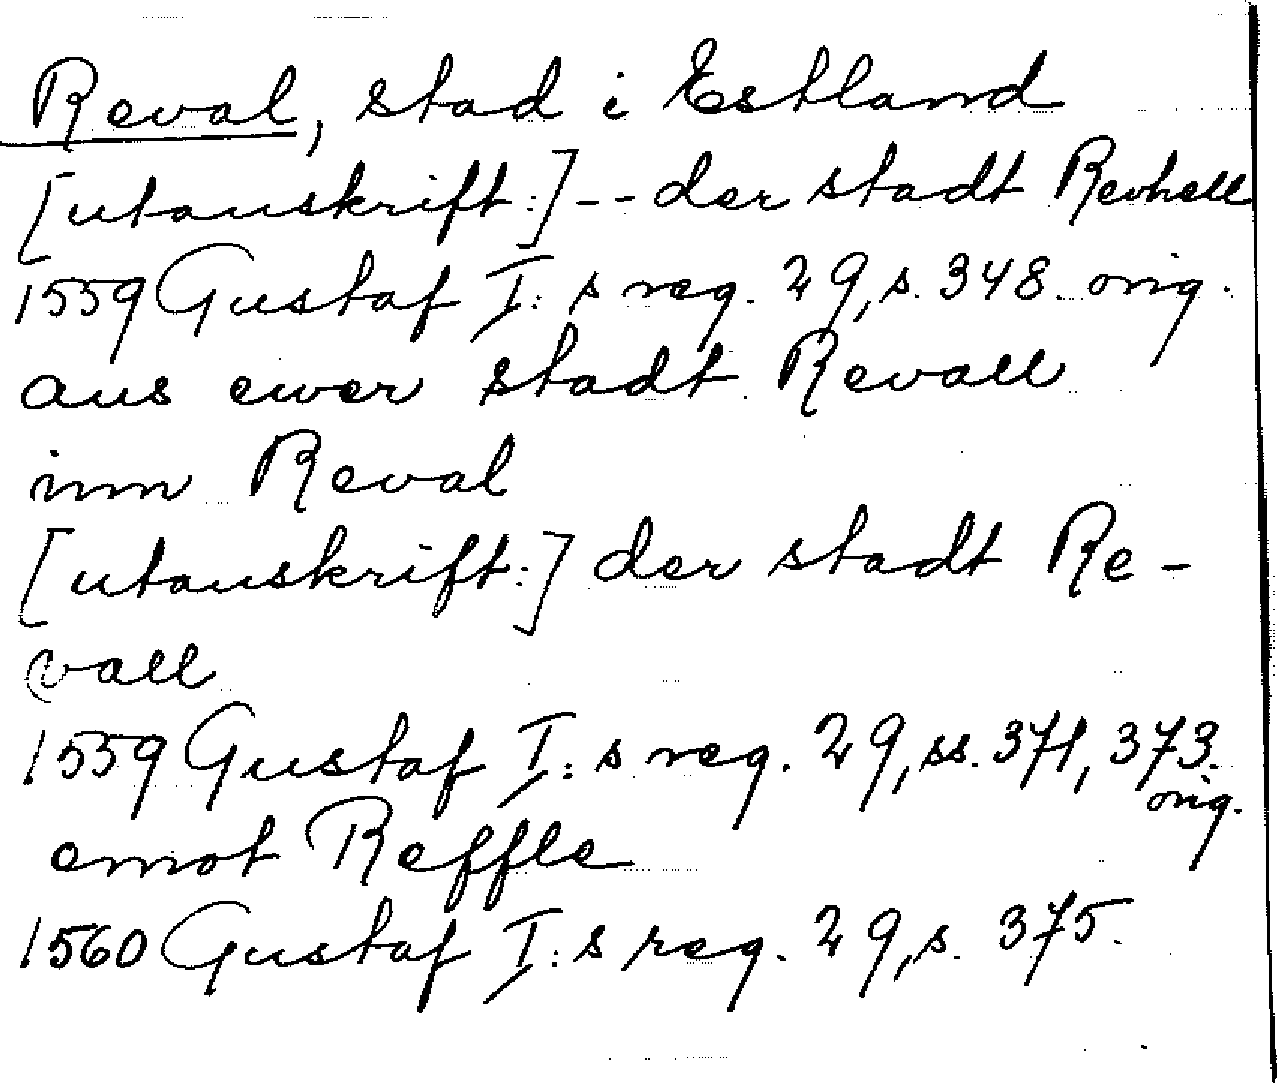 Reval, stad i Estland
[utanskrift:] -- der stadt Revhell
1559 Gustaf I:s reg. 29, s. 348. orig.
aus ewer stadt Revall
inn Reval
[utanskrift:] der stadt Re-
vall
1559 Gustaf I:s reg. 29, ss. 371, 373.
orig.
emot Reffle
1560 Gustaf I:s reg. 29, s. 375.